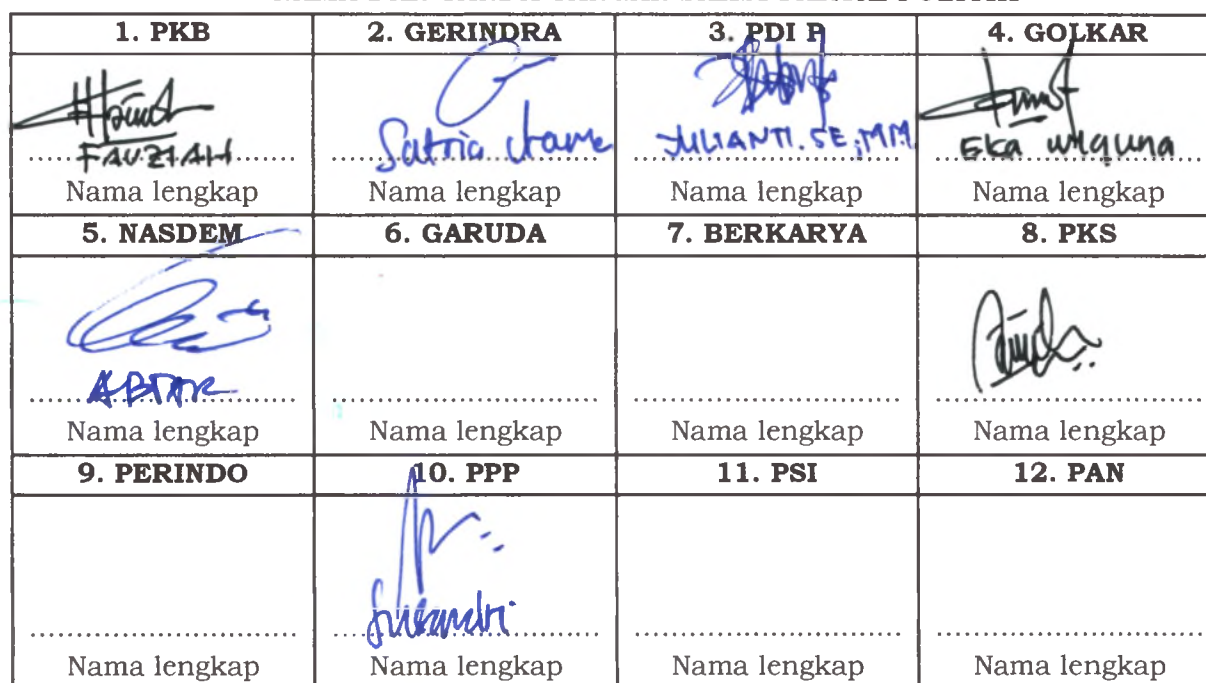 1. PKB 2. GERINDRA 3. PDI P 4. GOLKAR
FAUZIAH Satria JULIANTI. SE, MM Eka
Nama lengkap Nama lengkap Nama lengkap Nama lengkap
5. NASDEM 6. GARUDA 7. BERKARYA 8. PKS
Nama lengkap Nama lengkap Nama lengkap Nama lengkap
9. PERINDO 10. PPP 11. PSI 12. PAN
Nama lengkap Nama lengkap Nama lengkap Nama lengkap